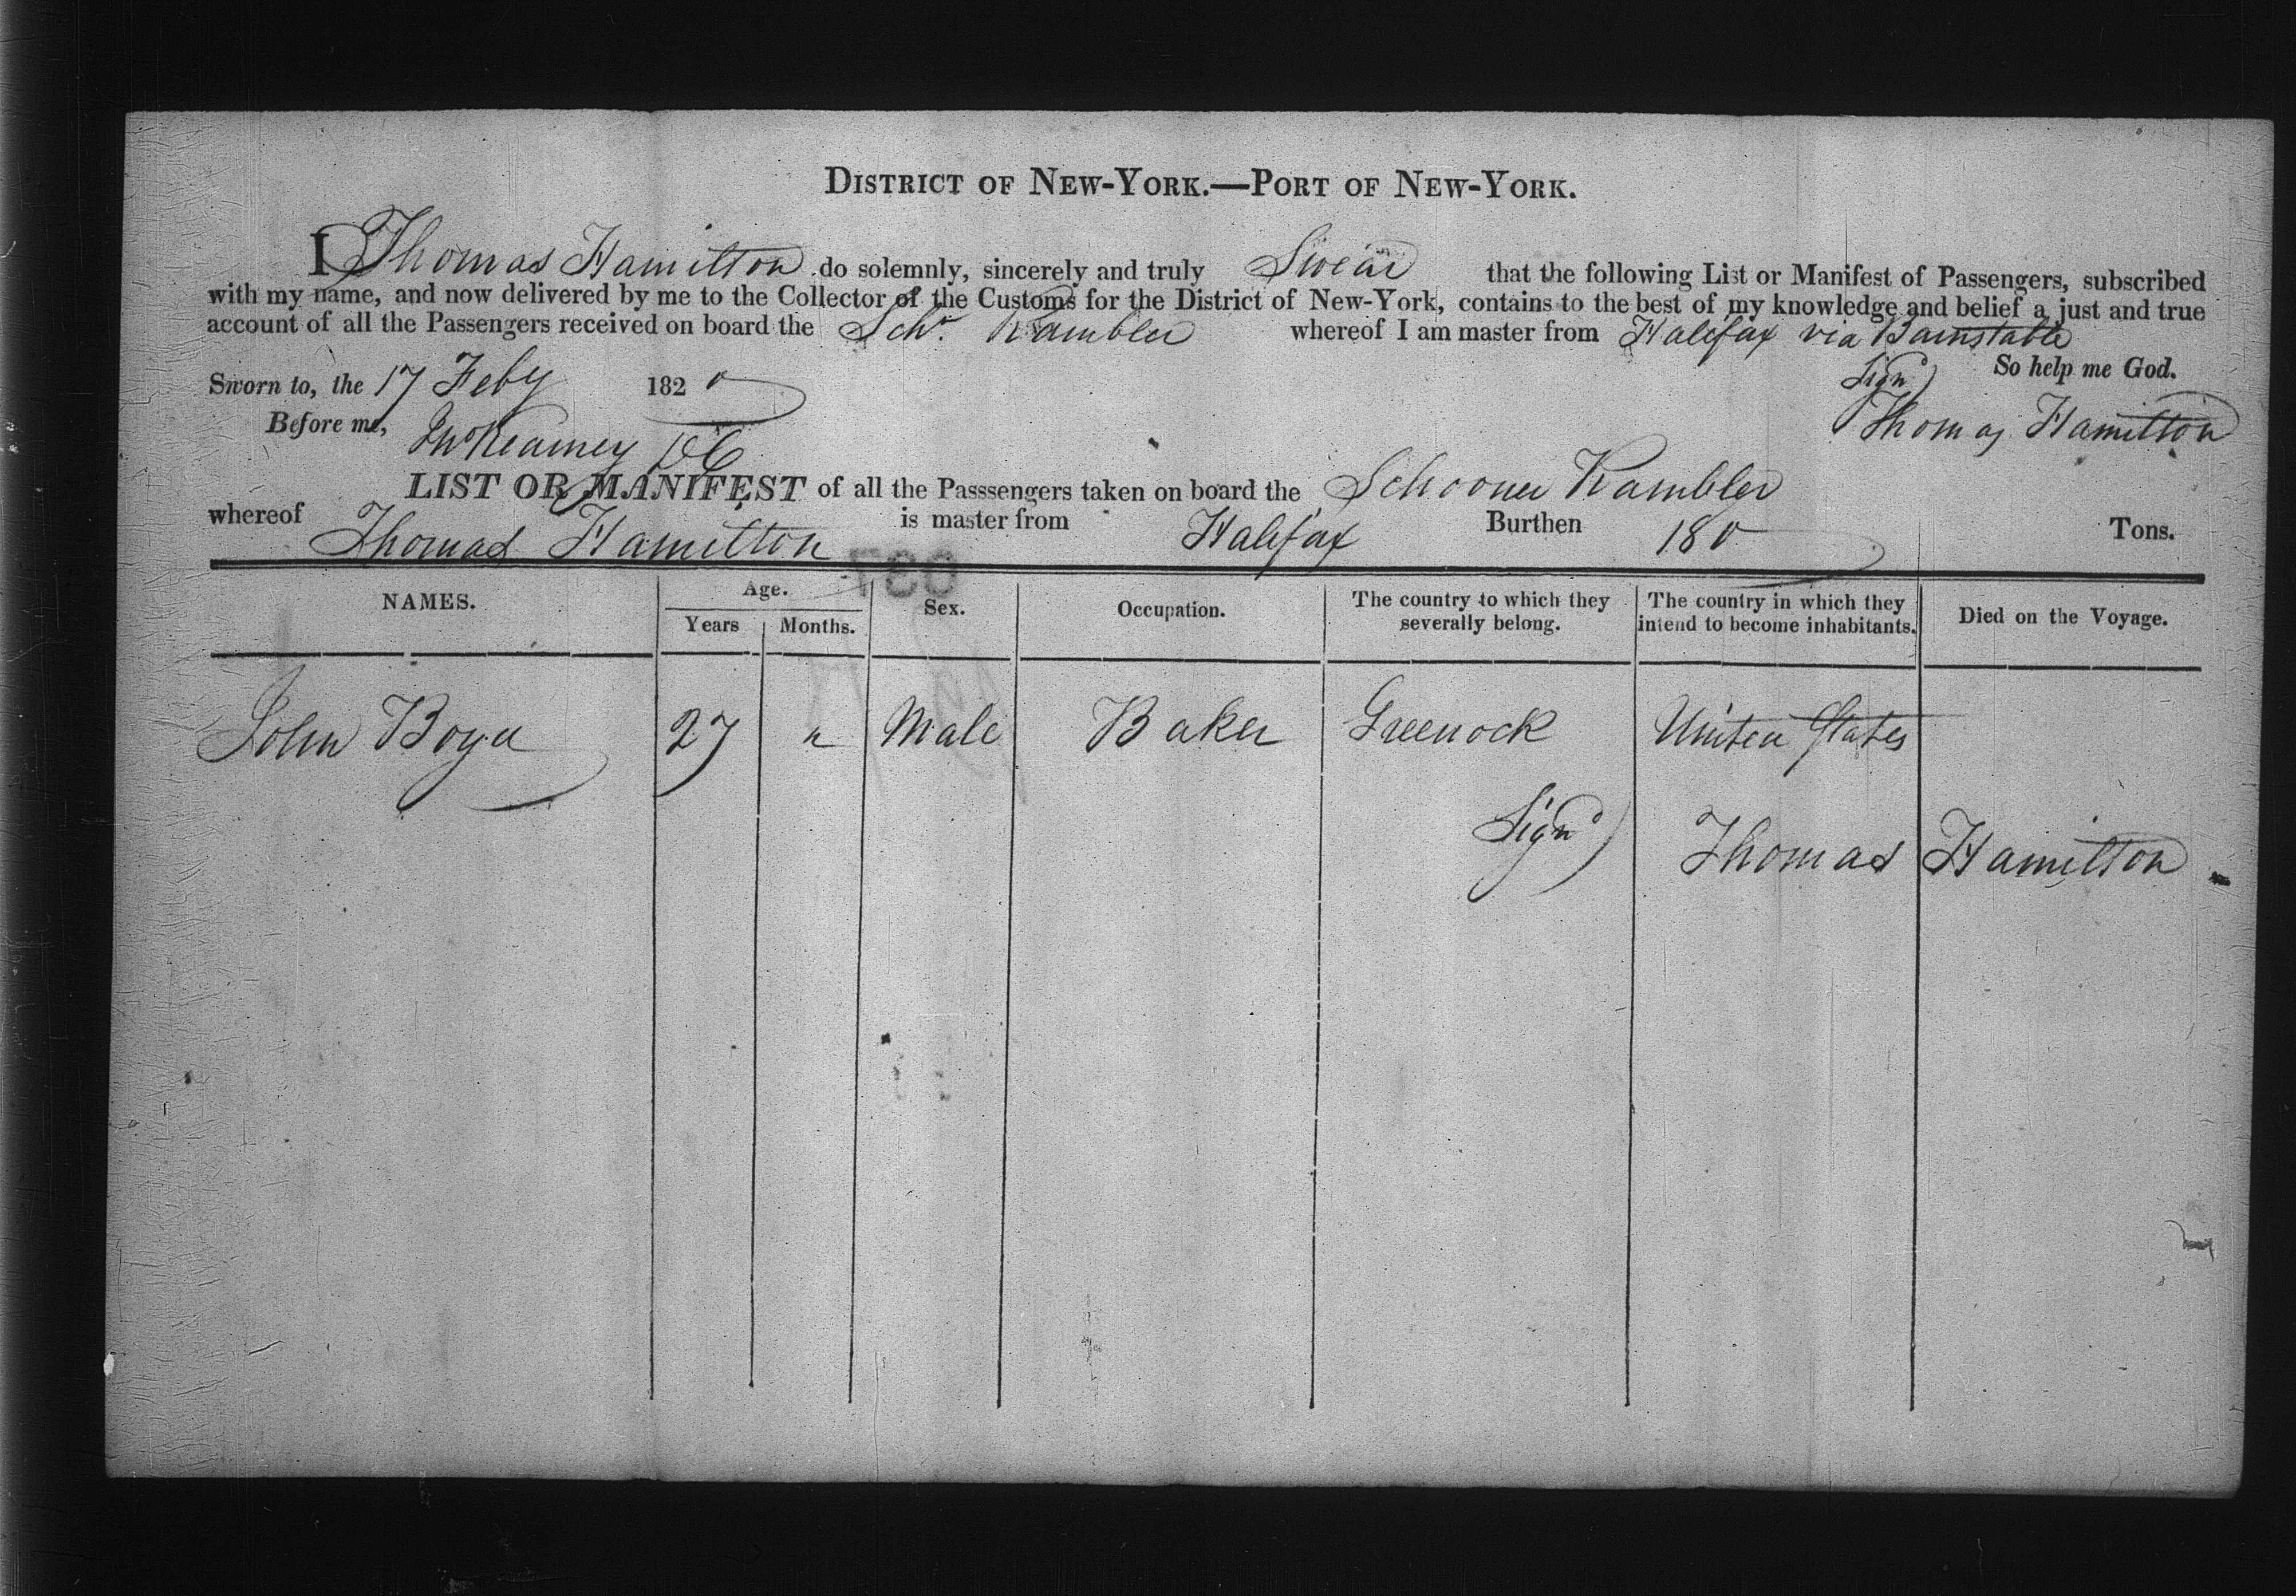 DISTRICT OF NEW-YORK.—PORT OF NEW-YORK.
I Thomas Hamilton do solemnly, sincerely and truly Swear that the following List or Manifest of Passengers, subscribed
with my name, and now delivered by me to the Collector of the Customs for the District of New-York, contains to the best of my knowledge and belief a just and true
account of all the Passengers received on board the Schr. Rambler whereof I am master from Halifax via Barnstable
So help me God.
Sworn to, the 17 Feby 1820
Signd
Before me,
Thomas Hamilton
LIST OR MANIFEST of all the Passsengers taken on board the Schooner Rambler
whereof Thomas Hamilton is master from Halifax Burthen 180 Tons.
NAMES. Age. Years Months. Sex. Occupation. The country to which they severally belong. The country in which they intend to become inhabitants. Died on the Voyage.
John 27 " Male Baker Greenock United States
Signd Thomas Hamilton